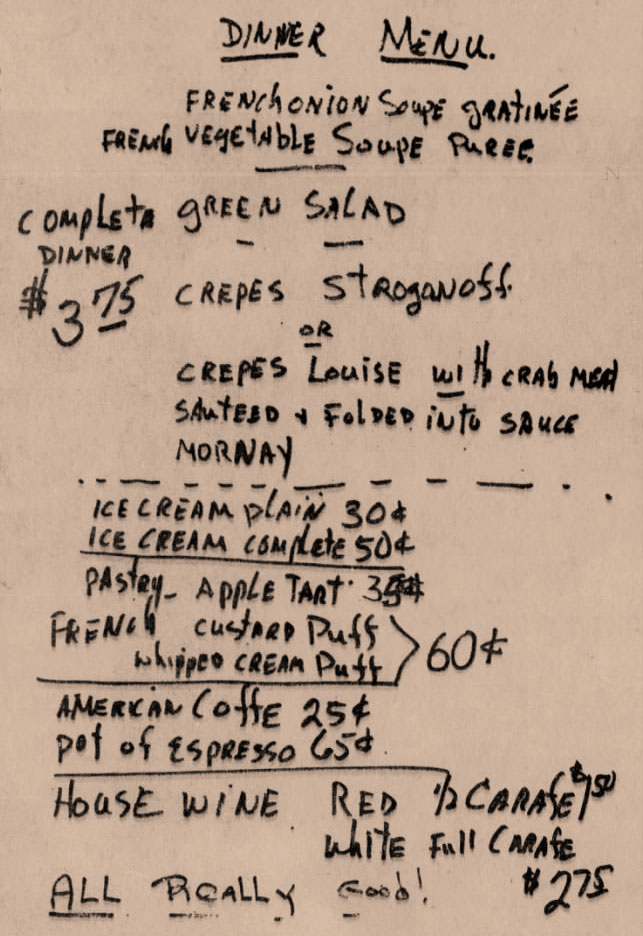 DINNER MENU.
FRENCH ONION SOUPE GRATINÉE
FRENCH VEGETABLE SOUPE PUREE
COMPLETE GREEN SALAD
DINNER
$3.75 CREPES STROGANOFF.
OR
CREPES LOUISE WITH CRAB MEAT
SAUTEED & FOLDED INTO SAUCE
MORNAY
ICE CREAM PLAIN 30¢
ICE CREAM COMPLETE 50¢
PASTRY - APPLE TART. 35¢
FRENCH CUSTARD PUFF
WHIPPED CREAM PUFF 60¢
AMERICAN COFFE 25¢
POT OF ESPRESSO 65¢
HOUSE WINE RED 1/2 CARAFE $1.50
WHITE FULL CARAFE
$2.75
ALL REALLY GOOD!